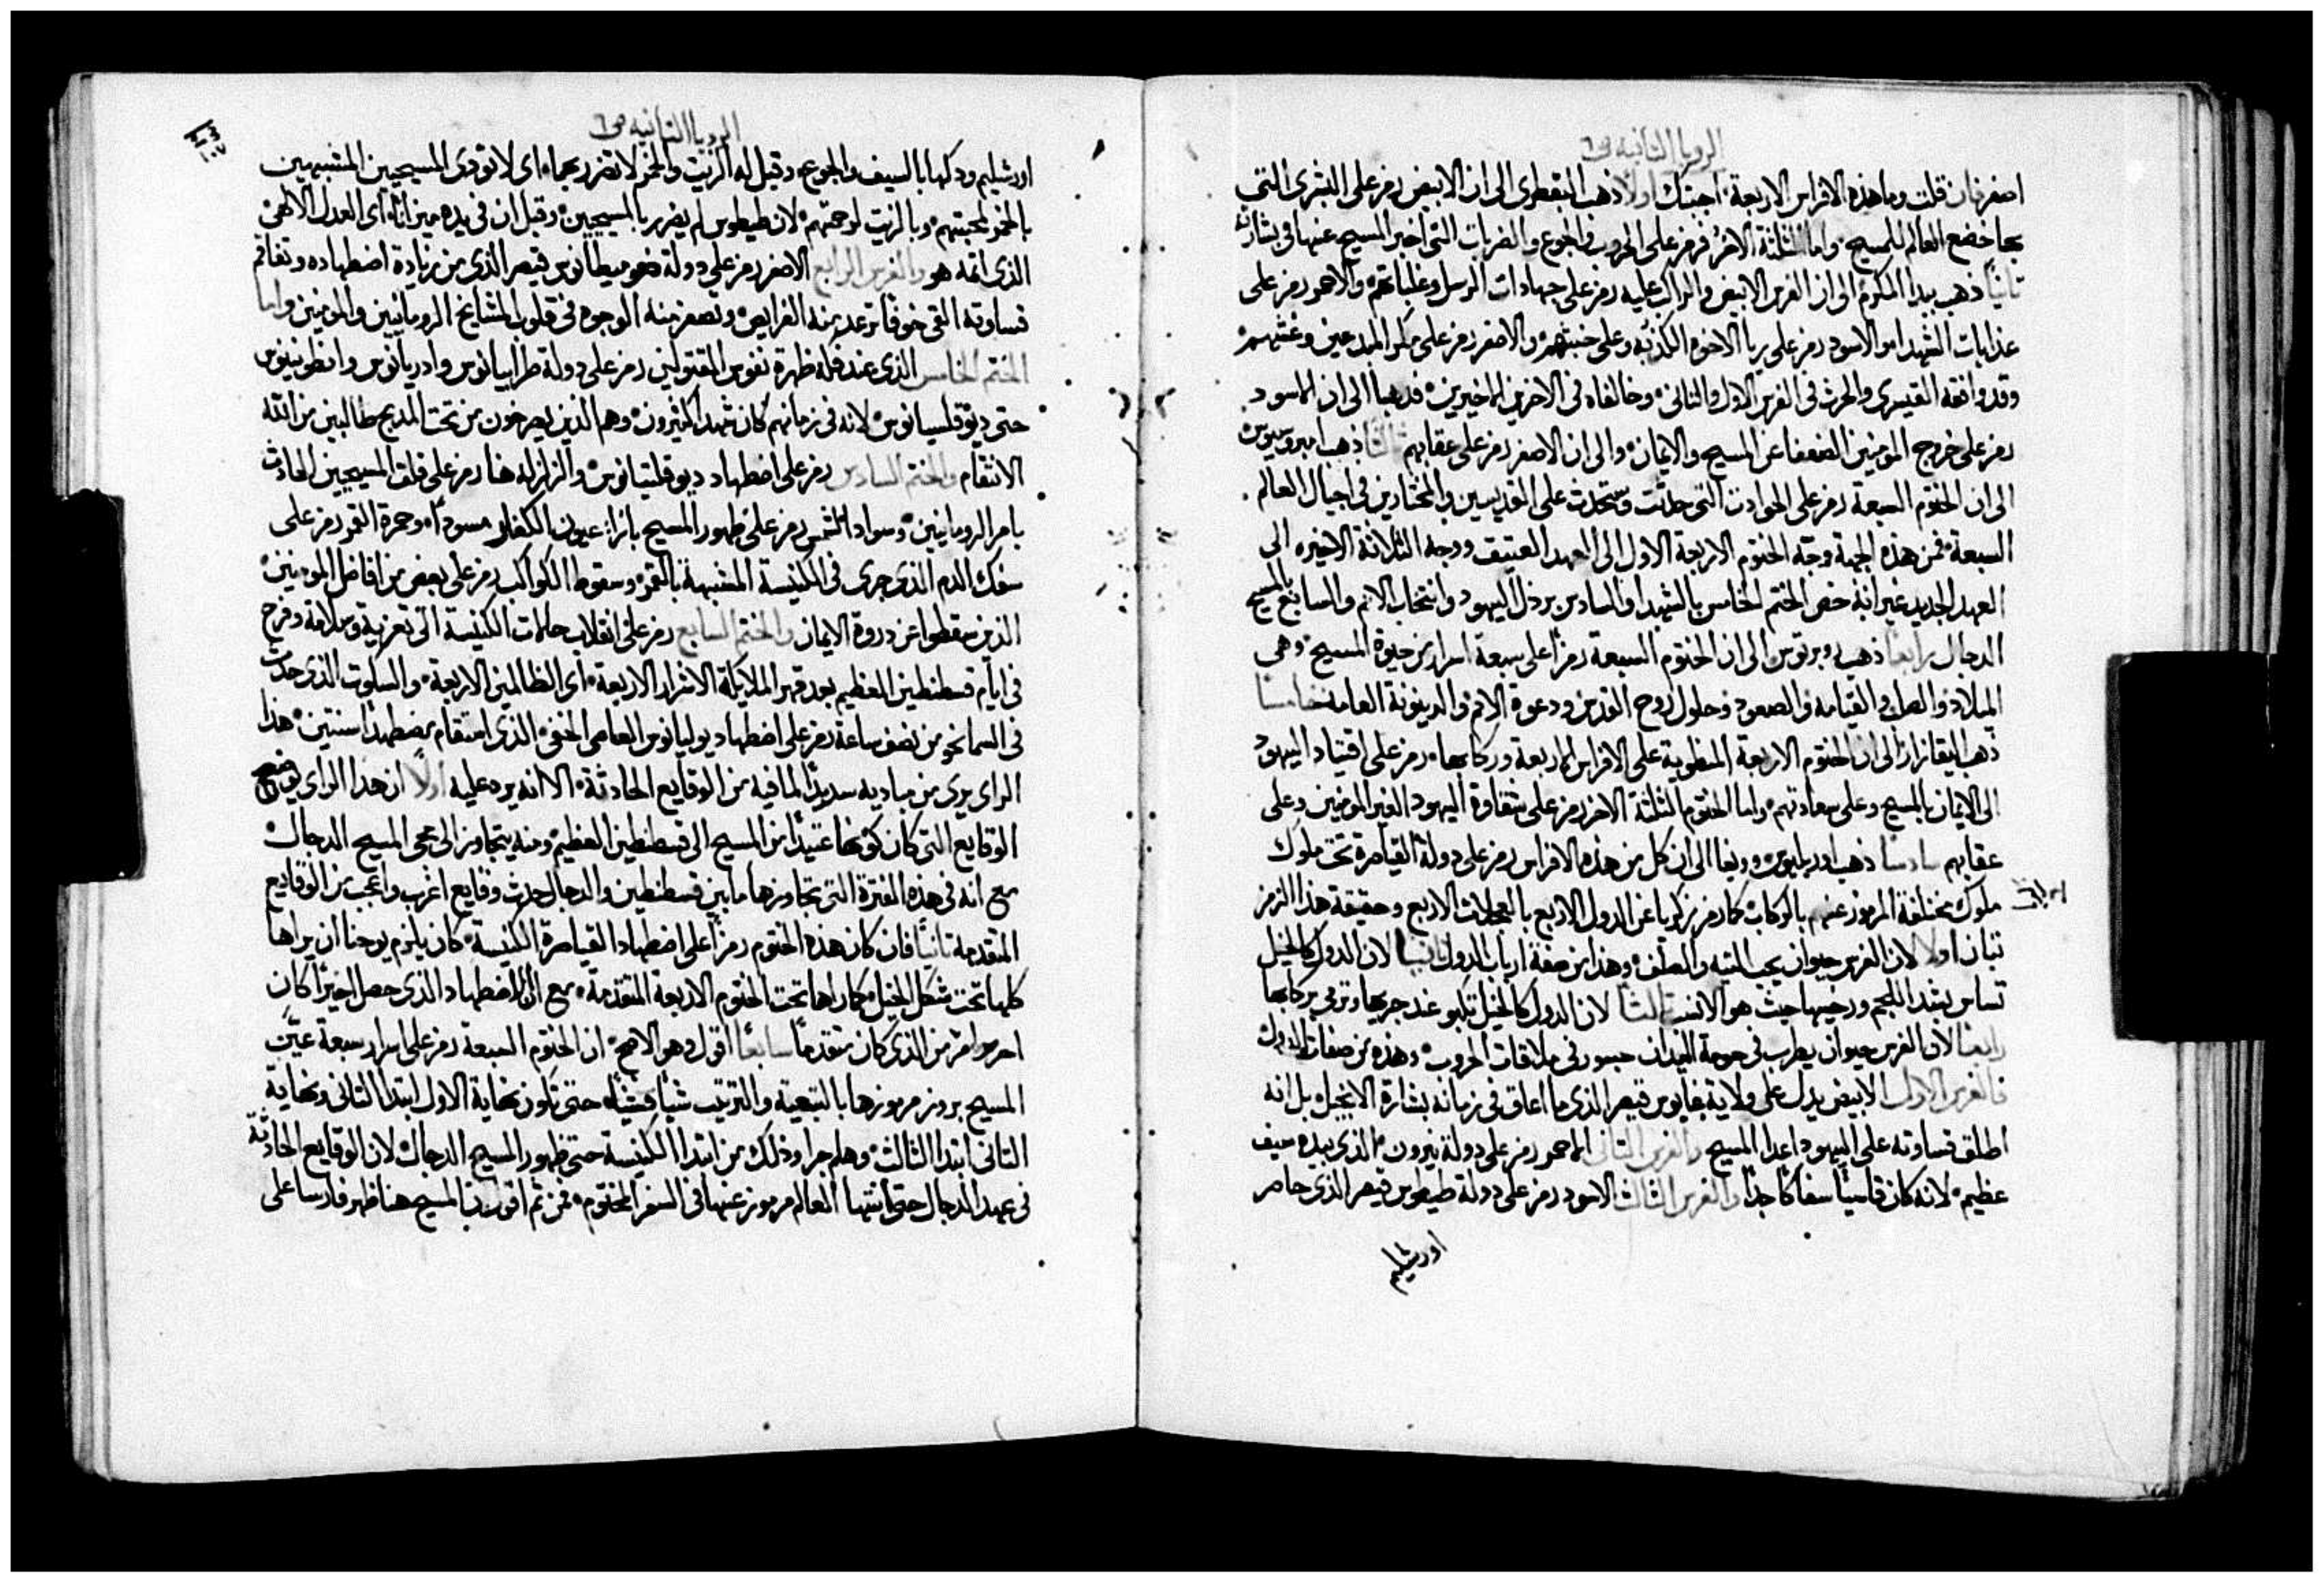 الرويا الثانيه ص٦
اصفر فان قلت وما هذه الافراس الاربعة اجبتك اولاً ذهب البقطرى الى ان الابيض رمز على البشرى التى
بها خضع العالم للمسيح واما الثلثة الاخر فرمز على الحروب والجوع والضربات التى اخبر المسيح عنها فى بشارته
ثانياً ذهب بيدا المكرم الى ان الفرس الابيض والراكب عليه رمز على جهادات الرسل وغلباتهم والاحمر رمز على
عذابات الشهدا والاسود رمز على ريا الاخوه الكذبه وعلى خبثهم والاصفر رمز على مكر المبدعين وغشهم
وقد وافقه القيسرى والحرث فى الفرس الاول والثانى وخالفاه فى الاخرين الاخيرين فذهبا الى ان الاسود
رمز على خروج المومنين الضعفا عن المسيح والايمان والى ان الاصفر رمز على عقابهم ثالثاً ذهب امبروسيوس
الى ان الختوم السبعة رمز على الحوادث التى حدثت وستحدث على القديسين والمختارين فى اجيال العالم
السبعة فمن هذه الجهة وجّه الختوم الاربعة الاول الى العهد العتيق ووجه الثلاثة الاخيره الى
العهد الجديد غير انه خص الختم الخامس بالشهدا والسادس برذل اليهود وانتخاب الامم والسابع بالمسيح
الدجال رابعاً ذهب روبرتوس الى ان الختوم السبعة رمزاً على سبعة اسرار من حيوة المسيح وهى
الميلاد والصلب والقيامه والصعود وحلول روح القدس ودعوة الامم والدينونة العامه خامساً
ذهب اليقازار الى ان الختوم الاربعة المنطوية على الافراس الاربعة وركابها رمز على اقتياد اليهود
الى الايمان بالمسيح وعلى سعادتهم واما الختوم الثلثة الاخر رمز على شقاوة اليهود الغير المومنين وعلى
عقابهم سادساً ذهب اوريليوس ووينغا الى ان كل من هذه الافراس رمز على دولة القياصرة تحت ملوك
ملوك مختلفة المرموز عنهم بالركاب كما رمز زكريا عن الدول الاربع بالعجلات الاربع وحقيقة هذا الرمز
تبان اولا لان الفرس حيوان يحب التيه والصلف وهذا من صفة ارباب الدول ثانياً لان الدول كالخيل
تساس بشد اللجم ورخيها حيث هو الانسب ثالثاً لان الدول كالخيل تكبو عند جريها وترمى بركابها
رابعاً لان الفرس حيوان يطرب فى حومة الميدان جسور فى ملاقات الحروب وهذه من صفات الدول
فالفرس الاول الابيض يدل على ولاية غايوس قيصر الذى ما اعاق فى زمانه بشارة الانجيل بل انه
اطلق قساوته على اليهود اعدا المسيح والفرس الثانى الاحمر رمز على دولة نيرون الذى بيده سيف
عظيم لانه كان قاسياً سفاكاً جداً والفرس الثالث الاسود رمز على دولة طيطوس قيصر الذى حاصر
اورشليم
الرويا الثانيه ص٦
اورشليم ودكها بالسيف والجوع وقيل له الزيت والخمر لا تضر بهما اى لا توذى المسيحيين المشبهين
بالخمر لمحبتهم وبالزيت لرحمتهم لان طيطوس لم يضرر بالمسيحيين وقيل ان فى يده ميزاناً اى العدل الالهى
الذى اتمه هو والفرس الرابع الاصفر رمز على دولة دوميطيانوس قيصر الذى من زيادة اضطهاده وتفاقم
قساوته القى خوفاً ترعد منه الفرايص وتصفر منه الوجوه فى قلوب المشايخ الرومانيين والمومنين واما
الختم الخامس الذى عند فكه ظهرة نفوس المقتولين رمز على دولة طرايانوس وادريانوس وانطونينوس
حتى ديوقلسيانوس لانه فى زمانهم كان شهدا كثيرون وهم الذين يصرخون من تحت المذبح طالبين من الله
الانتقام والختم السادس رمز على اضطهاد ديوقلتيانوس والزلزله هنا رمز على قلق المسيحيين الحادث
بامر الرومانيين وسواد الشمس رمز على ظهور المسيح بازاء عيون الكفار مسوداً وحمرة القمر رمز على
سفك الدم الذى جرى فى الكنيسة المشبهة بالقمر وسقوط الكواكب رمز على بعض من افاضل المومنين
الذين سقطوا عن دروة الايمان والختم السابع رمز على انقلاب حالات الكنيسة الى تعزية وسلامة وفرح
فى ايام قسطنطين العظيم بعد قهر الملايكة الاشرار الاربعة اى الظالمين الاربعة والسكوت الذى حدث
فى السما نحو من نصف ساعة رمز على اضطهاد يوليانوس العاصى الخفى الذى استقام مضطهداً سنتين هذا
الراى يرى من مباديه سديداً لما فيه من الوقايع الحادثة الا انه يرد عليه اولاً ان هذا الراى يوضح
الوقايع التى كان كونها عتيداً من المسيح الى قسطنطين العظيم ومنه يتجاوز الى مجى المسيح الدجال
مع انه فى هذه الفترة التى تجاوزها ما بين قسطنطين والدجال حدث وقايع اغرب واعجب من الوقايع
المتقدمة ثانياً فان كان هذه الختوم رمزاً على اضطهاد القياصرة الكنيسة كان يلزم يوحنا ان يراها
كلها تحت شكل الخيل كما راها تحت الختوم الاربعة المتقدمة مع ان الاضطهاد الذى حصل اخيراً كان
احر وامر من الذى كان متقدماً سابعاً اقول وهو الاصح ان الختوم السبعة رمز على اسرار سبعة عيّن
المسيح بروز مرموزها بالتبعية والترتيب شياً فشياً حتى تكون نهاية الاول ابتدا الثانى ونهاية
الثانى ابتدا الثالث وهلم جرا وذلك من ابتدا الكنيسة حتى ظهور المسيح الدجال لان الوقايع الحادثة
فى عهد الدجال حتى انتها العالم مرموز عنها فى السفر المختوم فمن ثم اقول ان المسيح هنا ظهر فارساً على